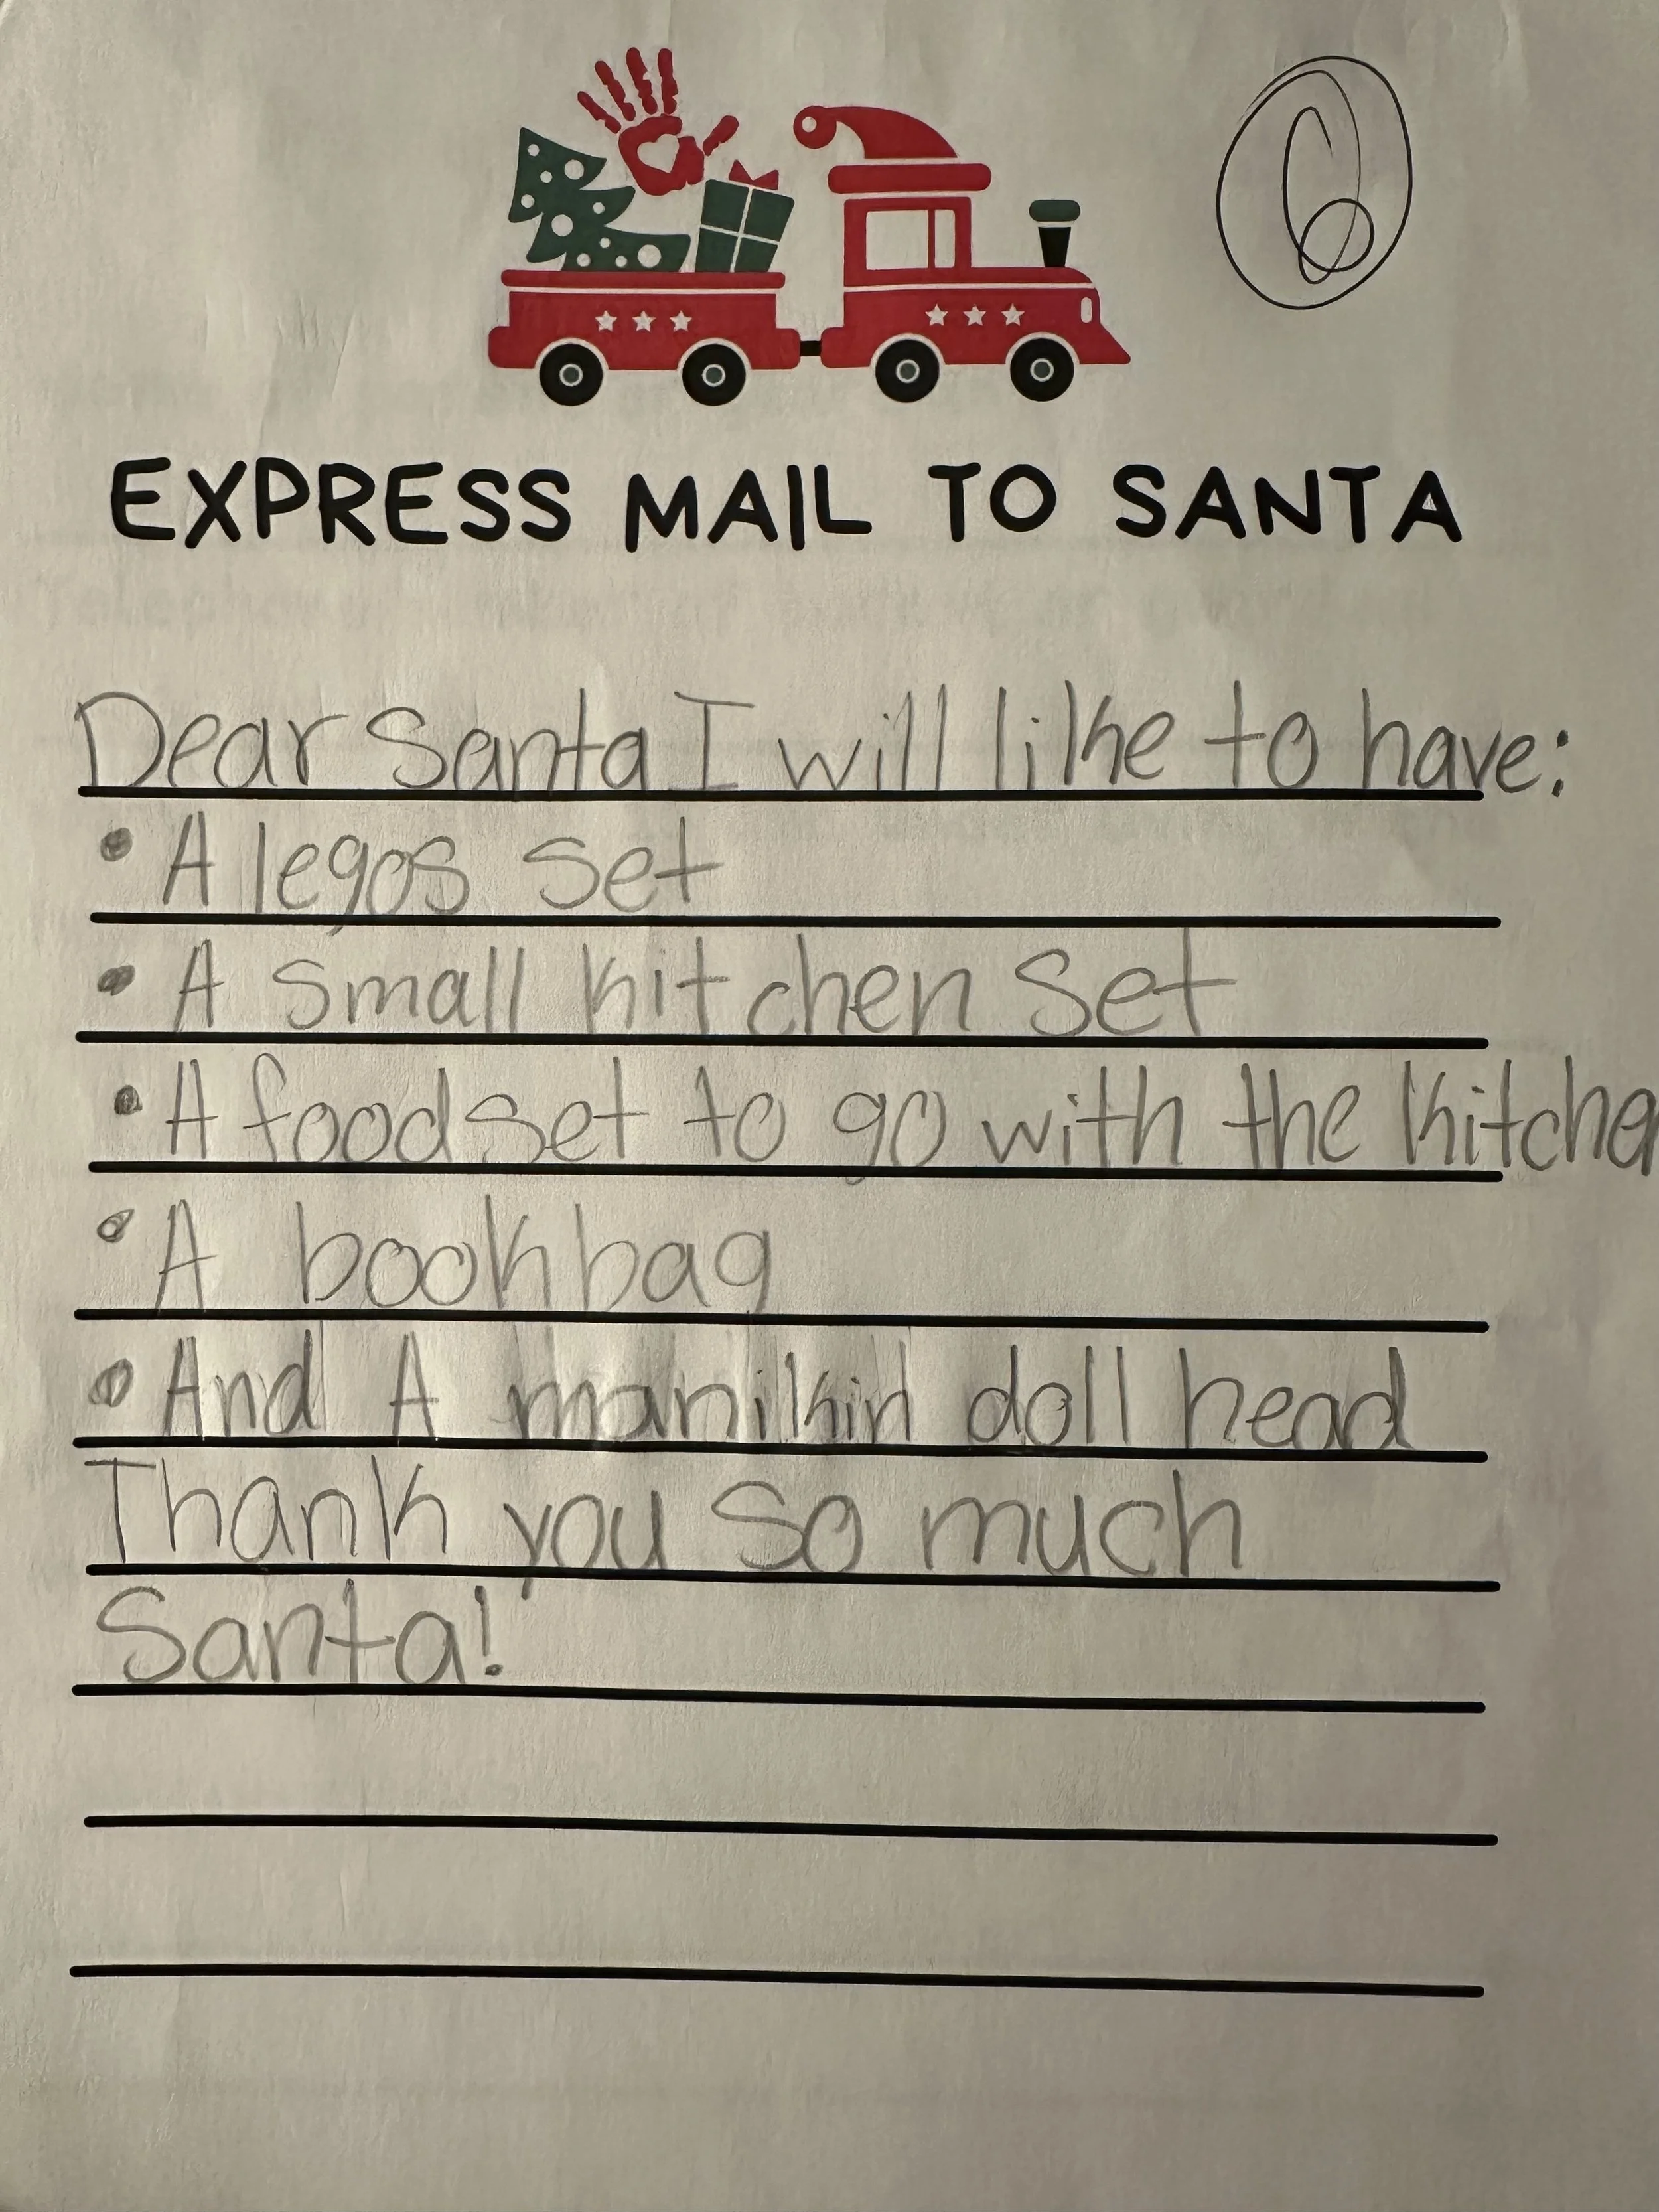 6
EXPRESS MAIL TO SANTA
Dear Santa I will like to have:
• A legos set
• A small kitchen set
• A food set to go with the kitchen
• A bookbag
• And A manikin doll head
Thank you so much
Santa!